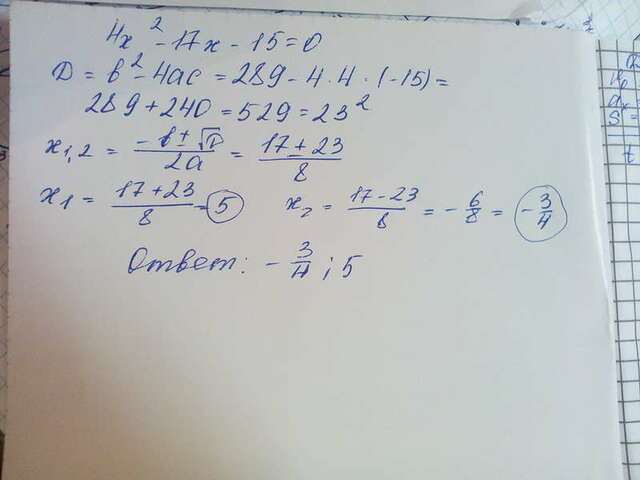 4x² - 17x - 15 = 0
D = b² - 4ac = 289 - 4 · 4 · (-15) =
289 + 240 = 529 = 23²
x₁,₂ = (-b ± √D)/2a = (17 ± 23)/8
x₁ = (17 + 23)/8 = 5 x₂ = (17 - 23)/8 = -6/8 = -3/4
Ответ: -3/4; 5